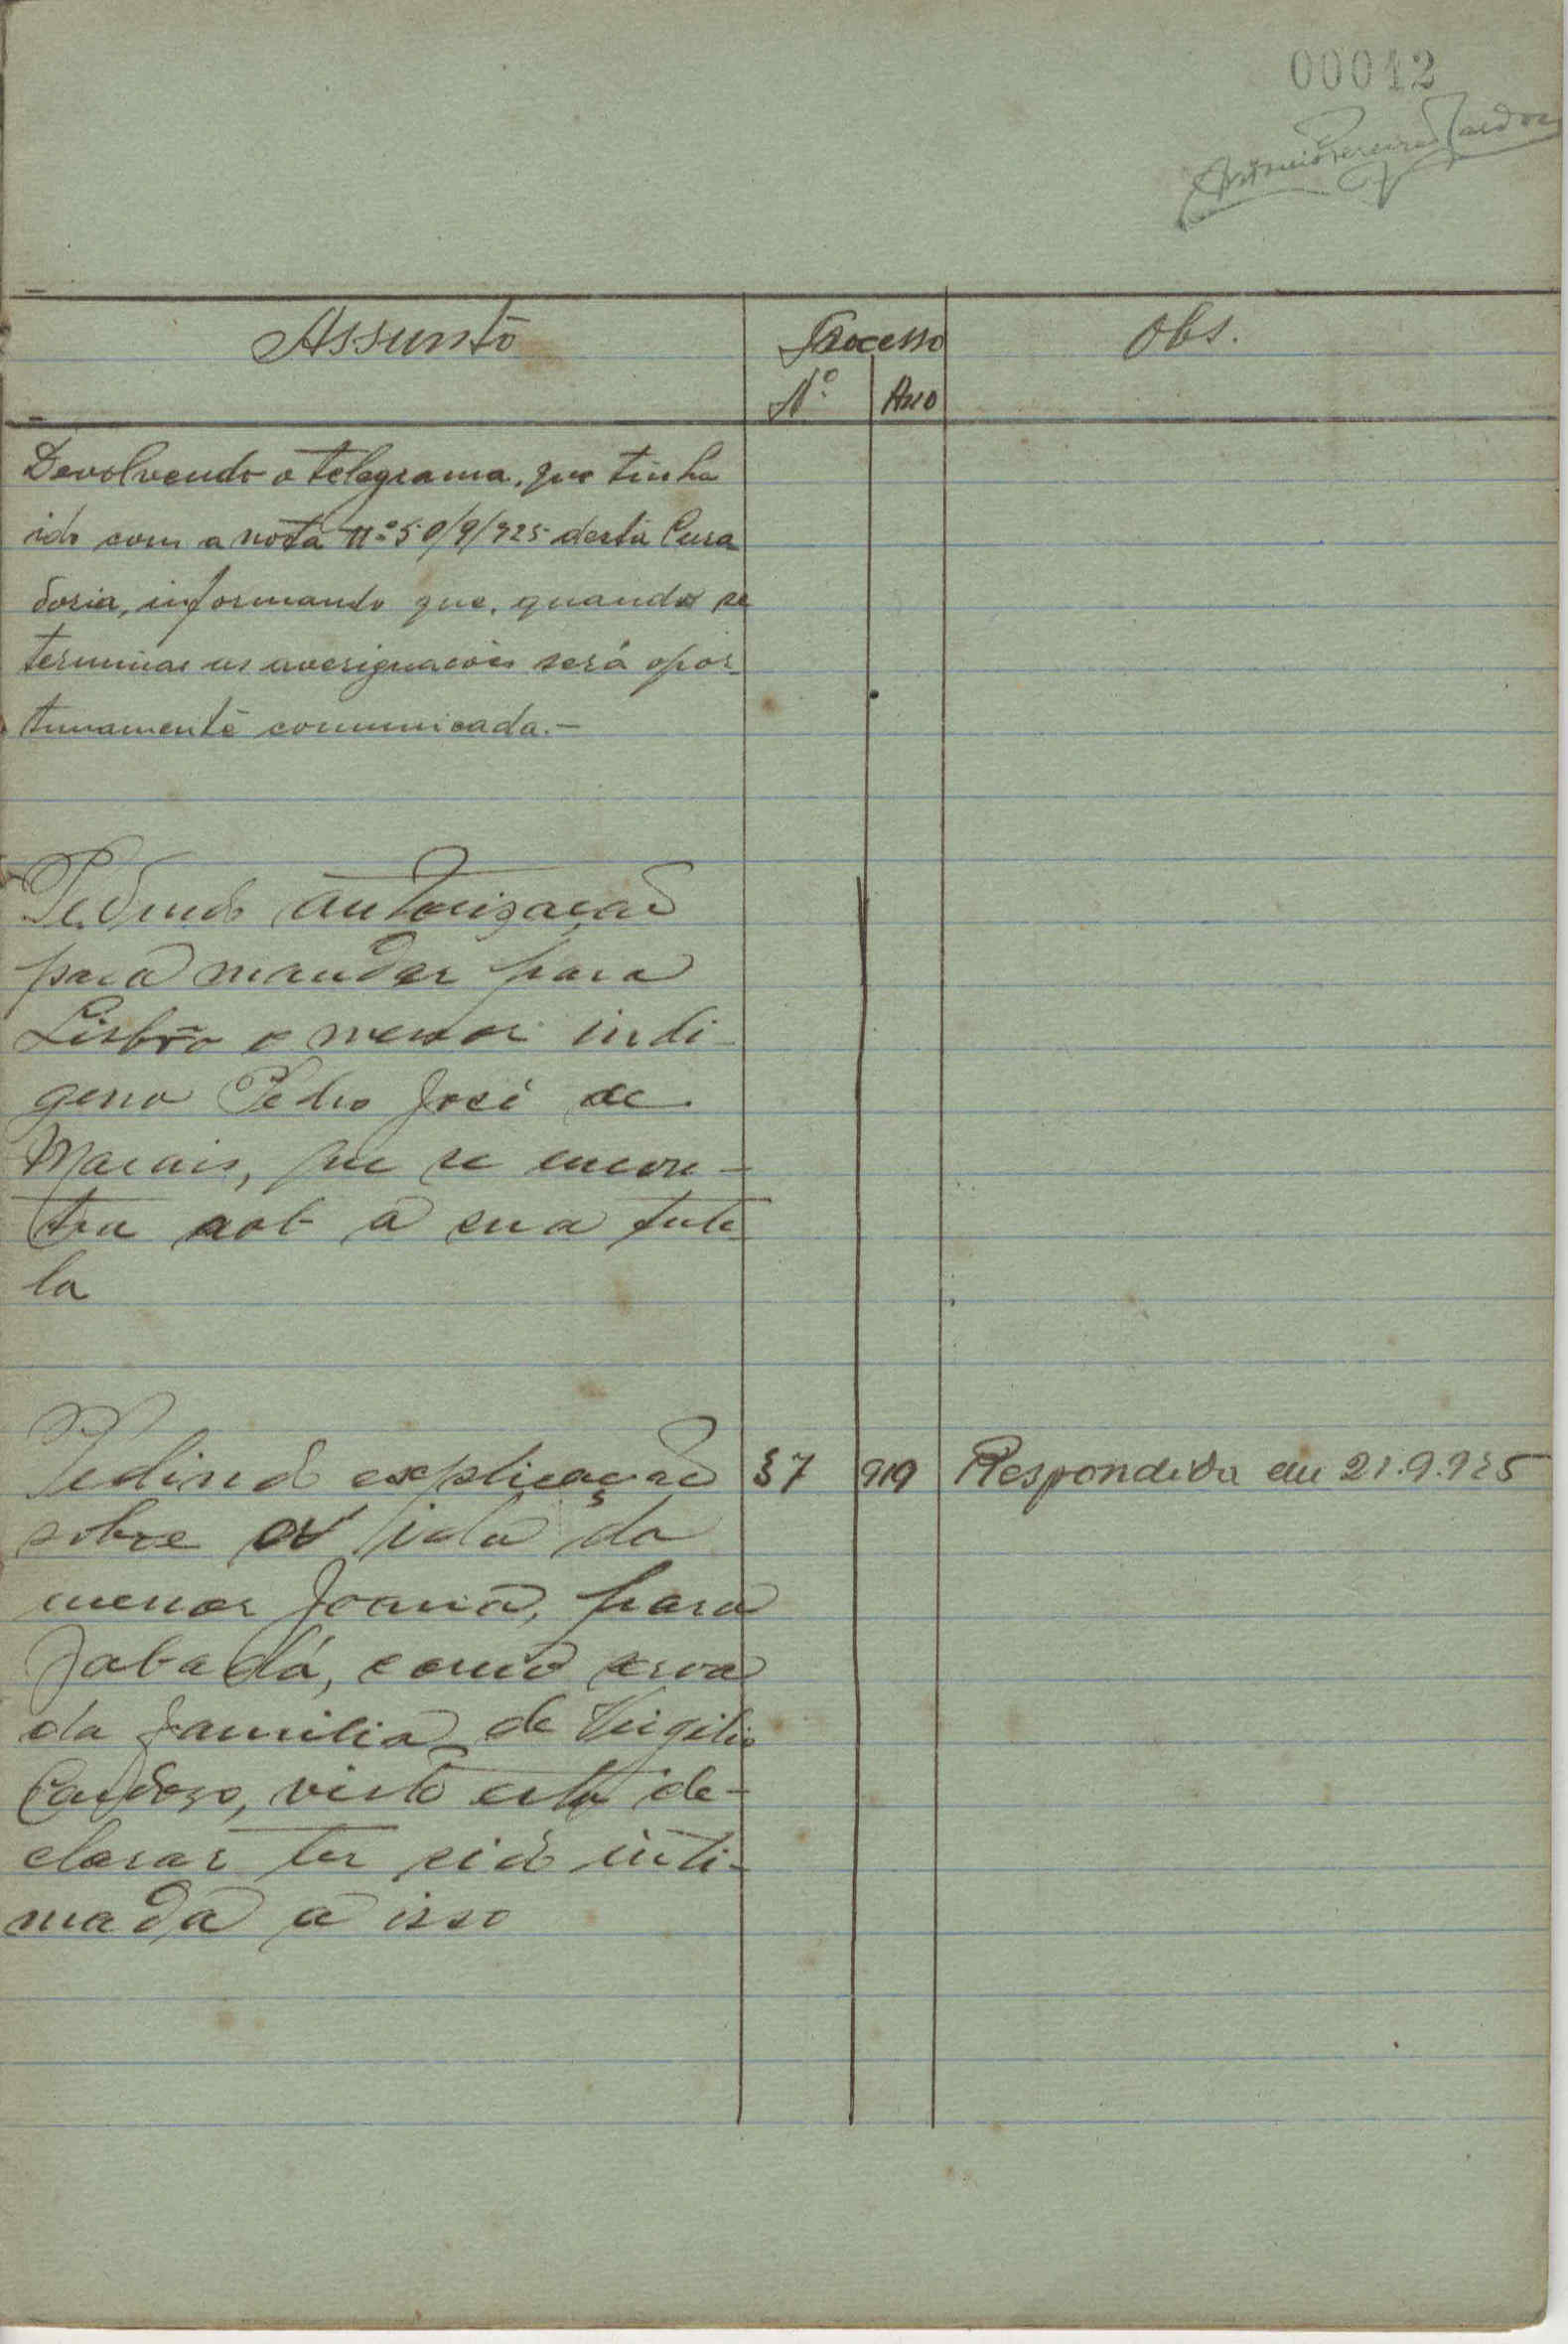 00012
Assunto
Processo
Obs.
Nº
Ano
Devolvendo o telegrama, que tinha
ido com a nota nº 50/9/925 desta Cura
doria, informando que, quando se
terminar as averiguacões será opor_
tunamente comunicada.—
Pedindo autorisação
para mandar para
Lisbôa o menor indi_
gena Pedro José de
Marais, que se encon-
tra sob a sua tute
la
Pedindo explicação
37
919
Respondida em 21.9.925
sobre a ida da
menor Joana, para
Jabadá, como serva
da familia de Virgilio
Cardoso, visto esta de-
clarar ter sido inti-
mada a isso